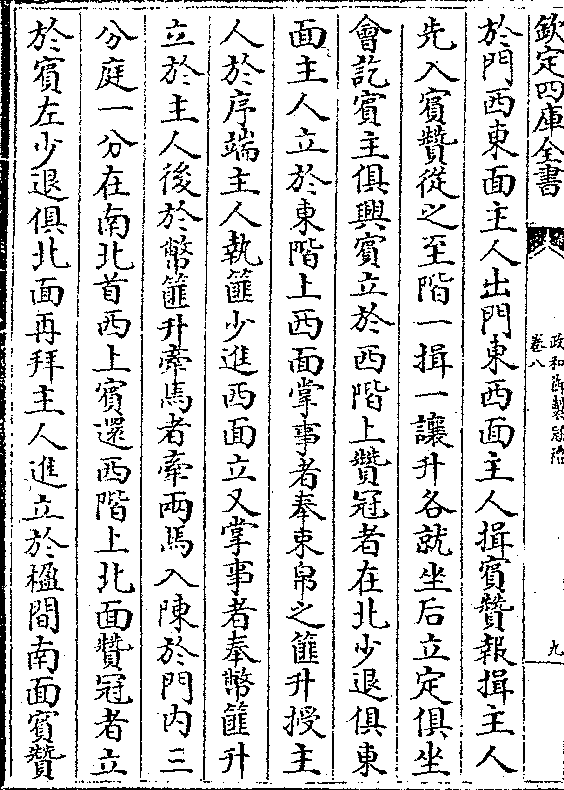 欽定四庫全書
政和御製冠禮
卷八
九
於門西東面主人出門東西面主人揖賓贊報揖主人
先入賓贊從之至階一揖一讓升各就坐后立定俱坐
會訖賓主俱興賓立於西階上贊冠者在北少退俱東
面主人立於東階上西面掌事者奉束帛之篚升授主
人於序端主人執篚少進西面立又掌事者奉幣篚升
立於主人後於幣篚升牽馬者牽兩馬入陳於門内三
分庭一分在南北首西上賓還西階上北面贊冠者立
於賓左少退俱北面再拜主人進立於楹間南面賓贊